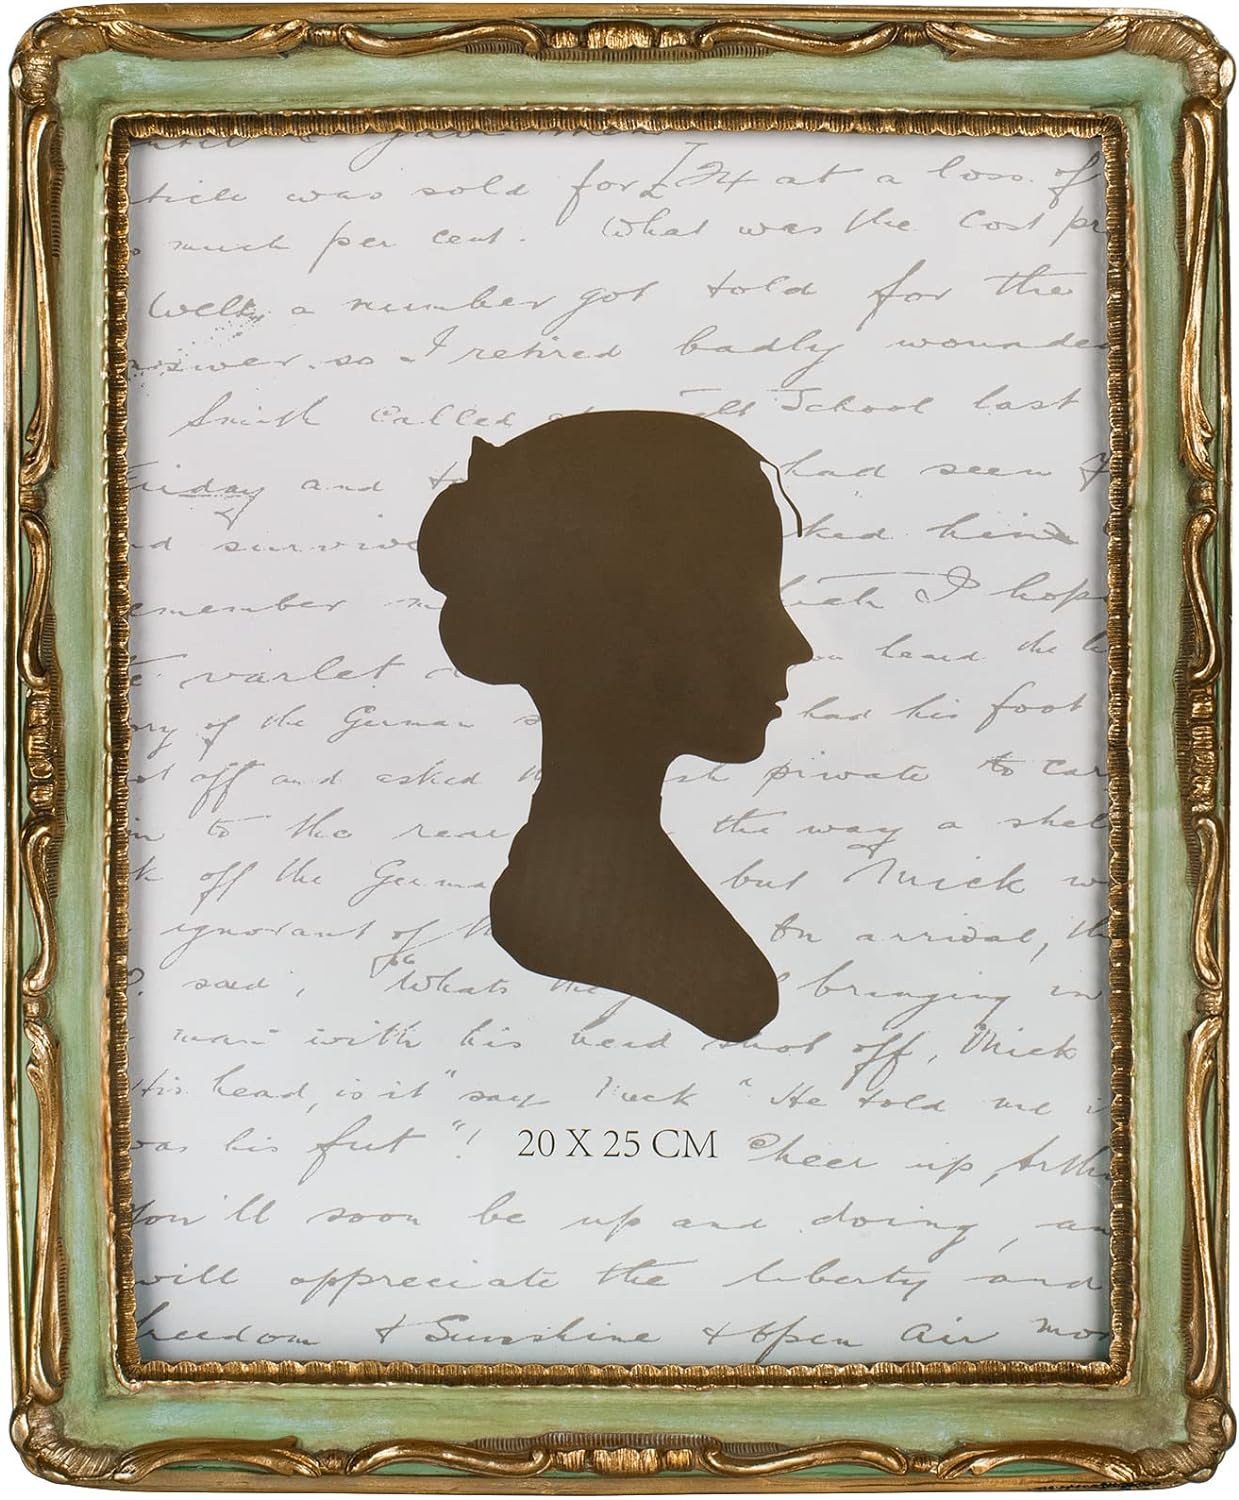 was sold for £24 at a loss of
much per cent. What was the Cost pr
Well, a number got told for the
so I retired badly wounde
Smith called School last
Friday and had seen
ked him
emember I hope
varlet heard the
ory of the German had his foot
off and asked private to car
to the rear the way a shel
off the Germa but Mick w
ignorant of On arrival, th
said, "Whats bringing in
man with his head shot off, Mick
His head, is it" say "He told me i
was his fut"! 20 X 25 CM Cheer up, Arthu
You'll soon be up and doing, an
will appreciate the liberty and
freedom & Sunshine & open air mo